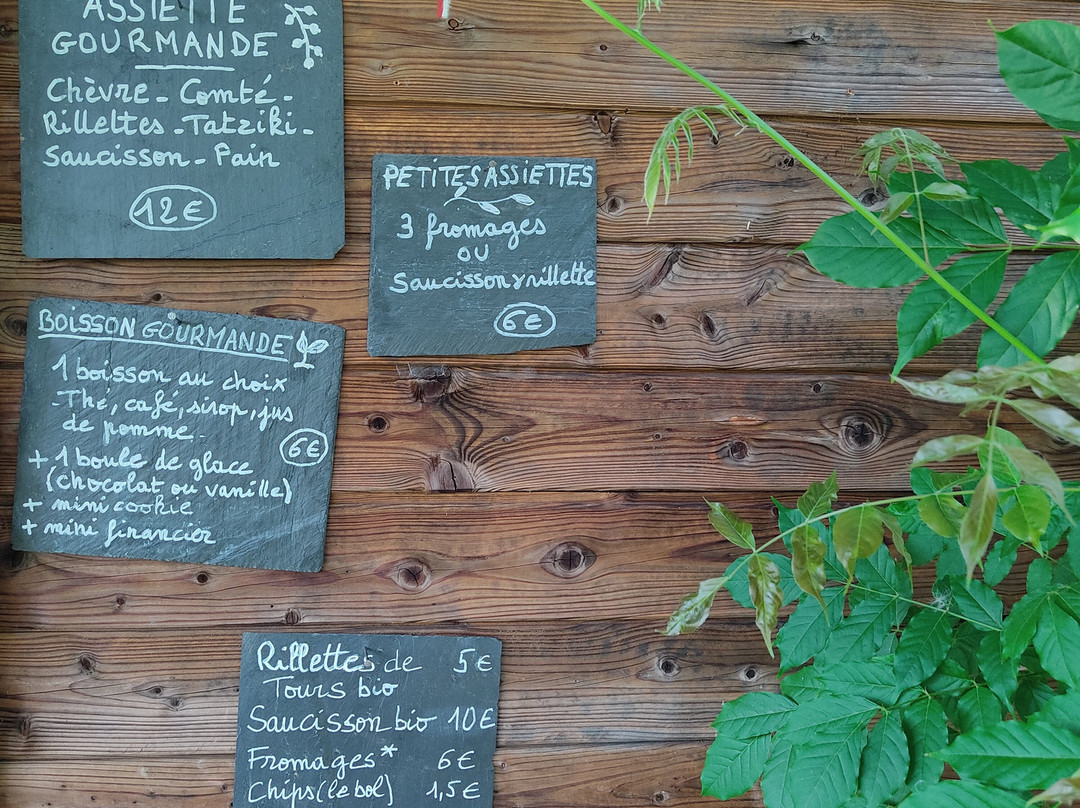 ASSIETTE
GOURMANDE
Chèvre - Comté -
Rillettes - Tatziki -
Saucisson - Pain
12€
PETITES ASSIETTES
3 fromages
OU
Saucisson & rillette
6€
BOISSON GOURMANDE
1 boisson au choix
- Thé, café, sirop, jus
de pomme.
6€
+ 1 boule de glace
(chocolat ou vanille)
+ mini cookie
+ mini financier
Rillettes de 5€
Tours bio
Saucisson bio 10€
Fromages* 6€
Chips (le bol) 1,5€